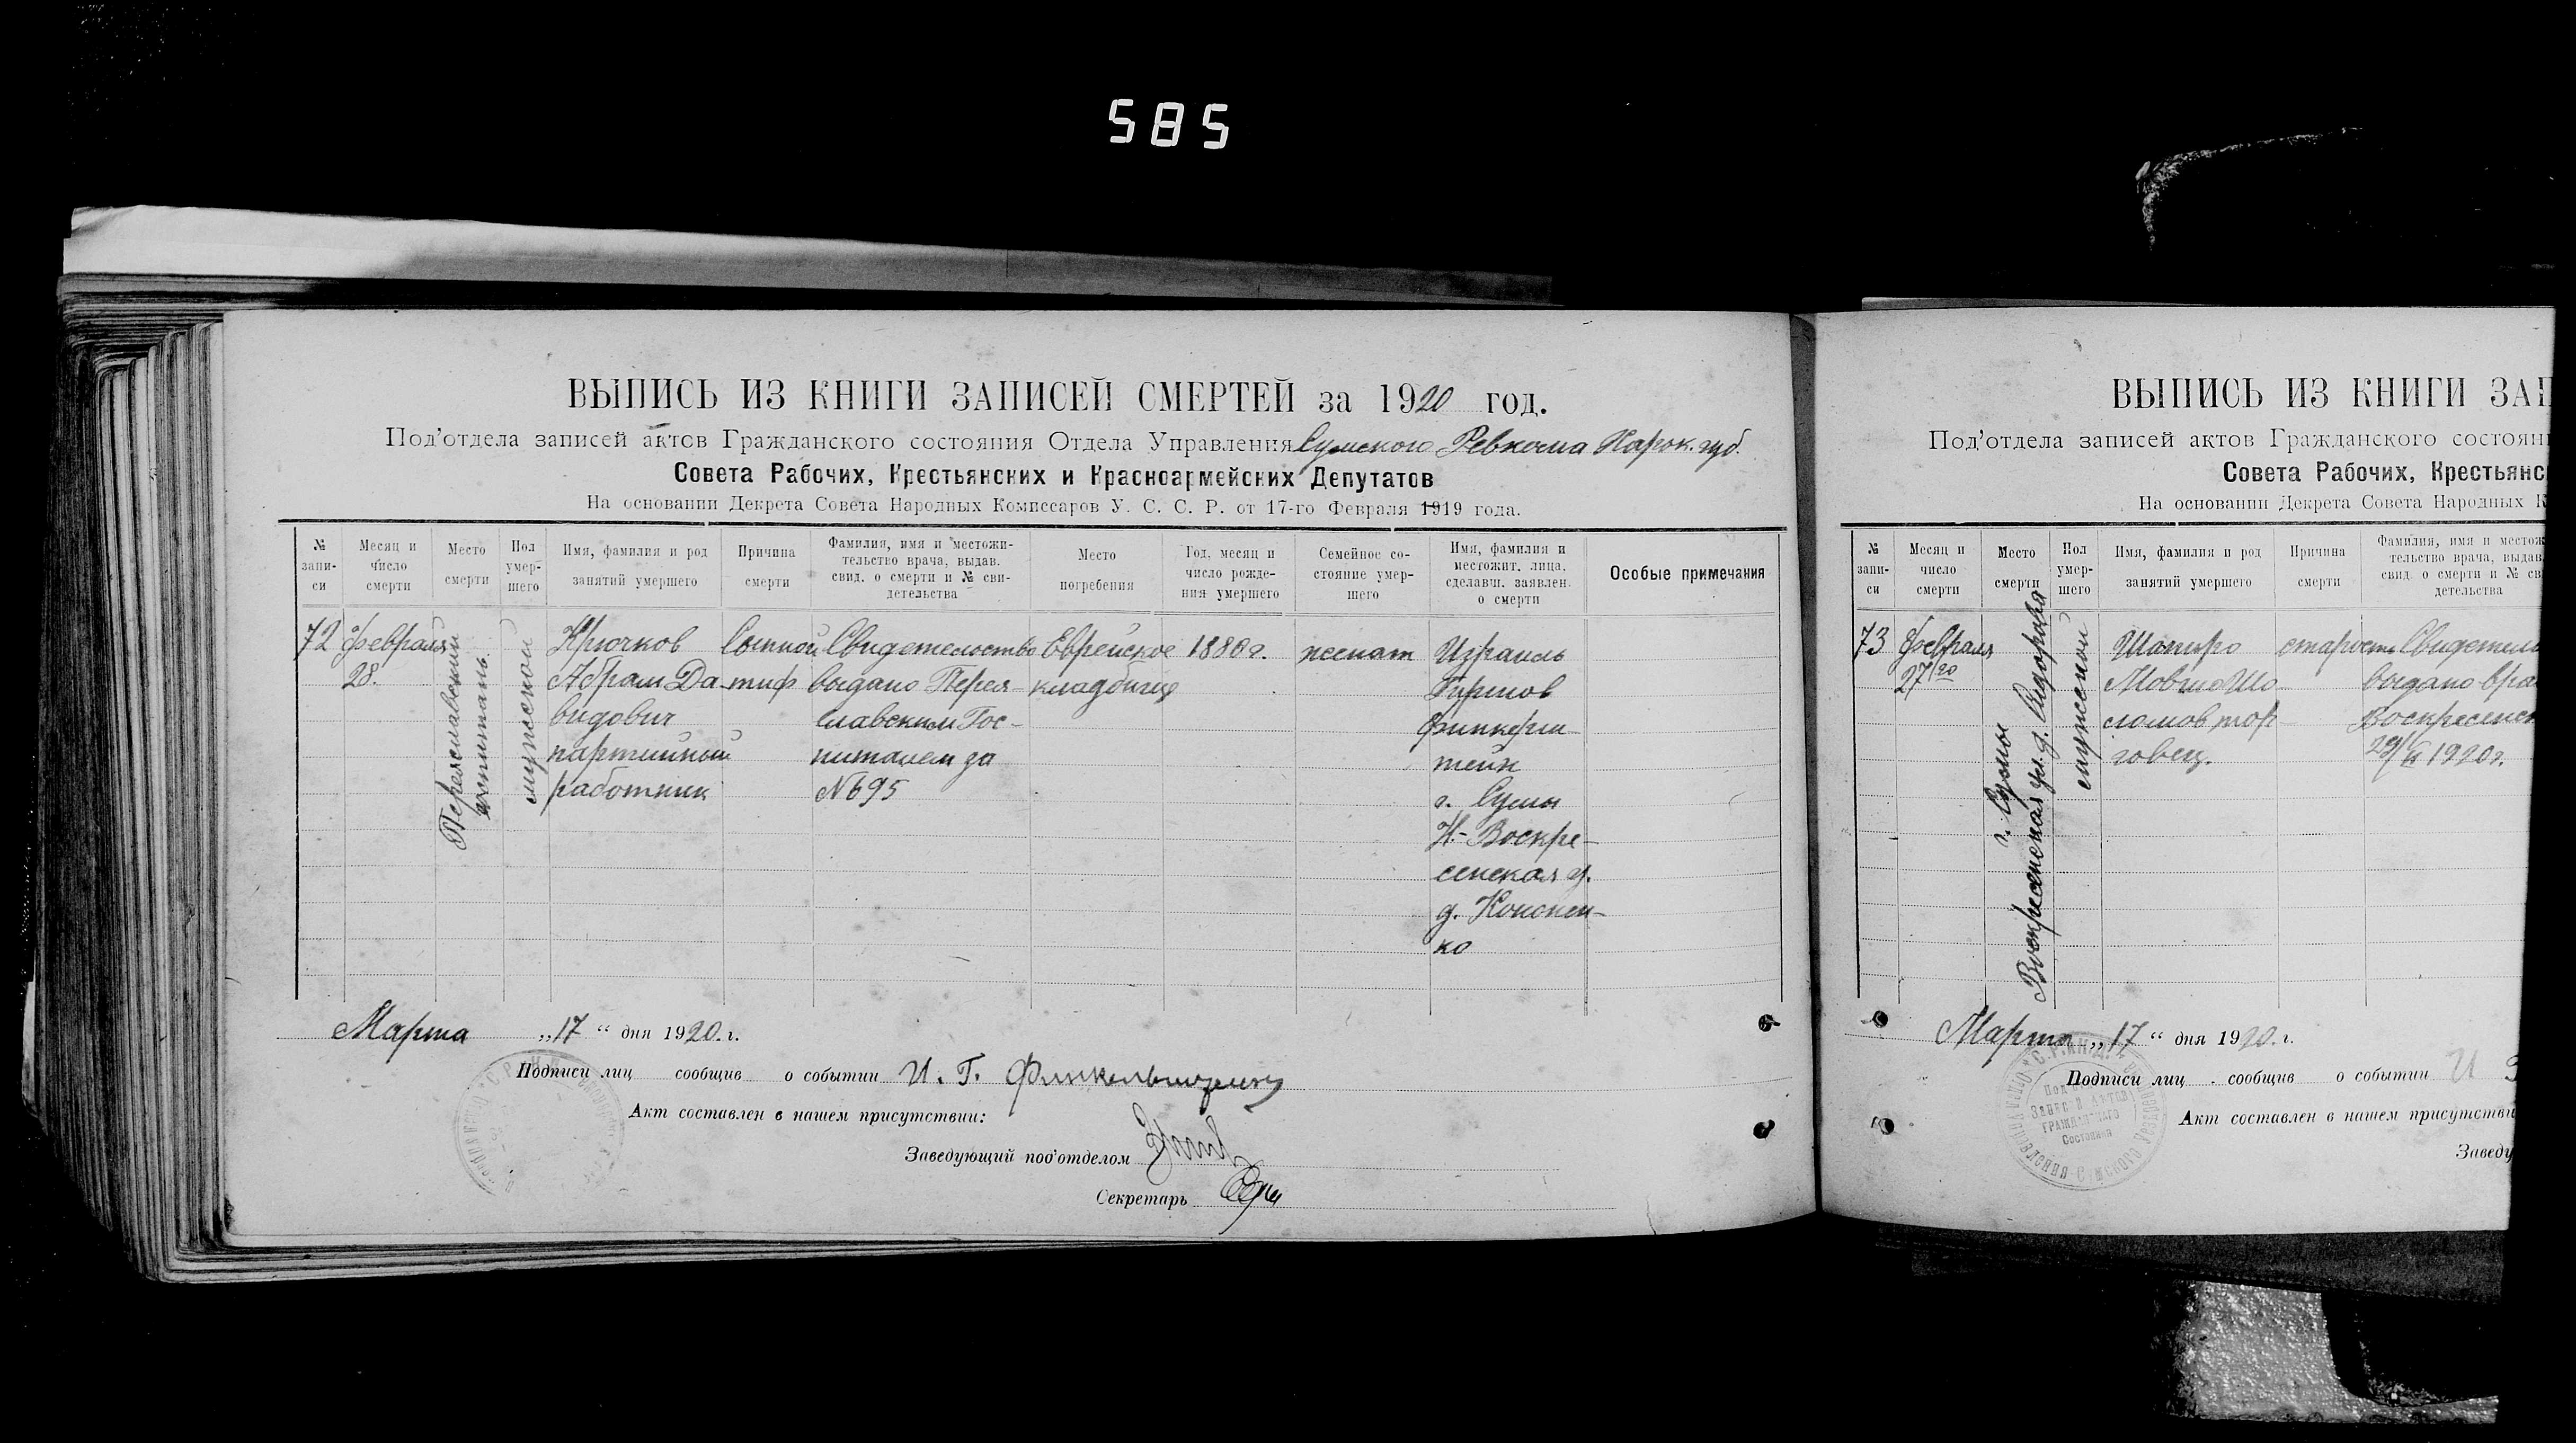 585
ВЫПИСЬ ИЗ КНИГИ ЗАПИСЕЙ СМЕРТЕЙ за 1920 год.
Под'отдела записей актов Гражданского состояния Отдела Управления Сумского Ревкома Харок. губ.
Совета Рабочих, Крестьянских и Красноармейских Депутатов
На основании Декрета Совета Народных Комиссаров У. С. С. Р. от 17-го Февраля 1919 года.
№ запи- си
Месяц и число смерти
Место смерти
Пол умер- шего
Имя, фамилия и род занятий умершего
Причина смерти
Фамилия, имя и местожи- тельство врача, выдав. свид. о смерти и № сви- детельства
Место погребения
Год, месяц и число рожде- ния умершего
Семейное со- стояние умер- шего
Имя, фамилия и местожит. лица, сделавш. заявлен. о смерти
Особые примечания
72
Февраля
28.
Переяславский
госпиталь
мужской
Крючков
Абрам Да-
видович
партийный
работник
Сыпной
тиф
Свидетельство
выдано Перея-
славским Гос-
питалем за
№ 695
Еврейское
кладбище
1880 г.
женат
Израиль
Гиршов
Финкель-
штейн
г. Сумы
Н.- Воскре-
сенская ул.
д. Кононен-
ко
Марта „17“ дня 1920. г.
Подписи лиц сообщив о событии И. Г. Финкельштейн
Акт составлен в нашем присутствии:
Заведующий под'отделом
Секретарь
ВЫПИСЬ ИЗ КНИГИ ЗАП
Под'отдела записей актов Гражданского состоян
Совета Рабочих, Крестьянс
На основании Декрета Совета Народных К
№ запи- си
Месяц и число смерти
Место смерти
Пол умер- шего
Имя, фамилия и род занятий умершего
Причина смерти
Фамилия, имя и местож
тельство врача, выдав.
свид. о смерти и № св
детельства
73
Февраля
27/20
г. Сумы
Воскресенская ул. д. Сидорова
мужской
Шапиро
Мовша Шо-
ломов тор
говец.
старость
Свидетель
выдано вра
Воскресенск
29/II 1920 г.
Марта „17“ дня 1920. г.
Подписи лиц сообщив о событии И
Акт составлен в нашем присутстви
Заведу
С.Р.КН.Д.
Записи актов
ГРАЖДАНСКАГО
Состояния